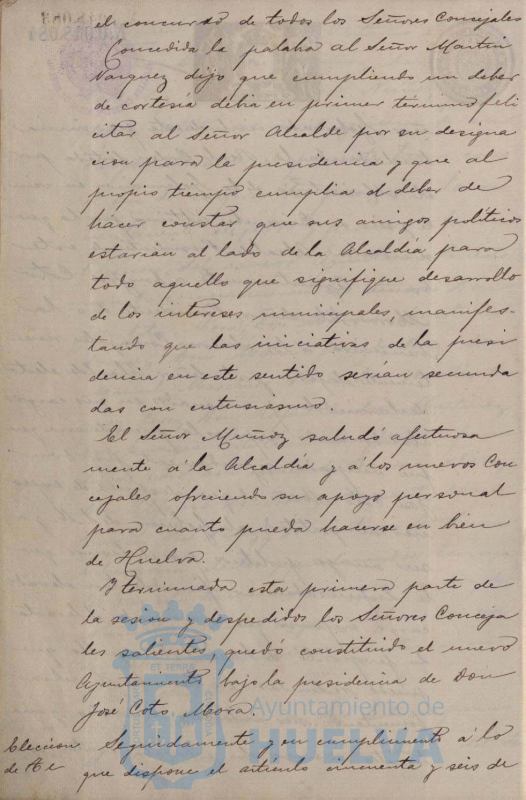 el concurso de todos los Señores Concejales
Concedida la palabra al Señor Martin
Vazquez dijo que cumpliendo un deber
de cortesía debia en primer termino feli
citar al Señor Alcalde por su designa
cion para la presidencia y que al
propio tiempo cumplia el deber de
hacer constar que sus amigos politicos
estarian al lado de la Alcaldía para
todo aquello que signifique desarrollo
de los intereses municipales, manifes-
tando que las iniciativas de la presi
dencia en este sentido serían secunda
das con entusiasmo.
El Señor Muñoz saludó afectuosa
mente á la Alcaldía y á los nuevos Con
cejales ofreciendo su apoyo personal
para cuanto pueda hacerse en bien
de Huelva.
Y terminada esta primera parte de
la sesion y despedidos los Señores Conceja
les salientes quedó constituido el nuevo
Ayuntamiento bajo la presidencia de Don
José Coto Mora.
Eleccion Seguidamente y en cumplimiento á lo
de Te que dispone el artículo cincuenta y seis de
Ayuntamiento de
HUELVA